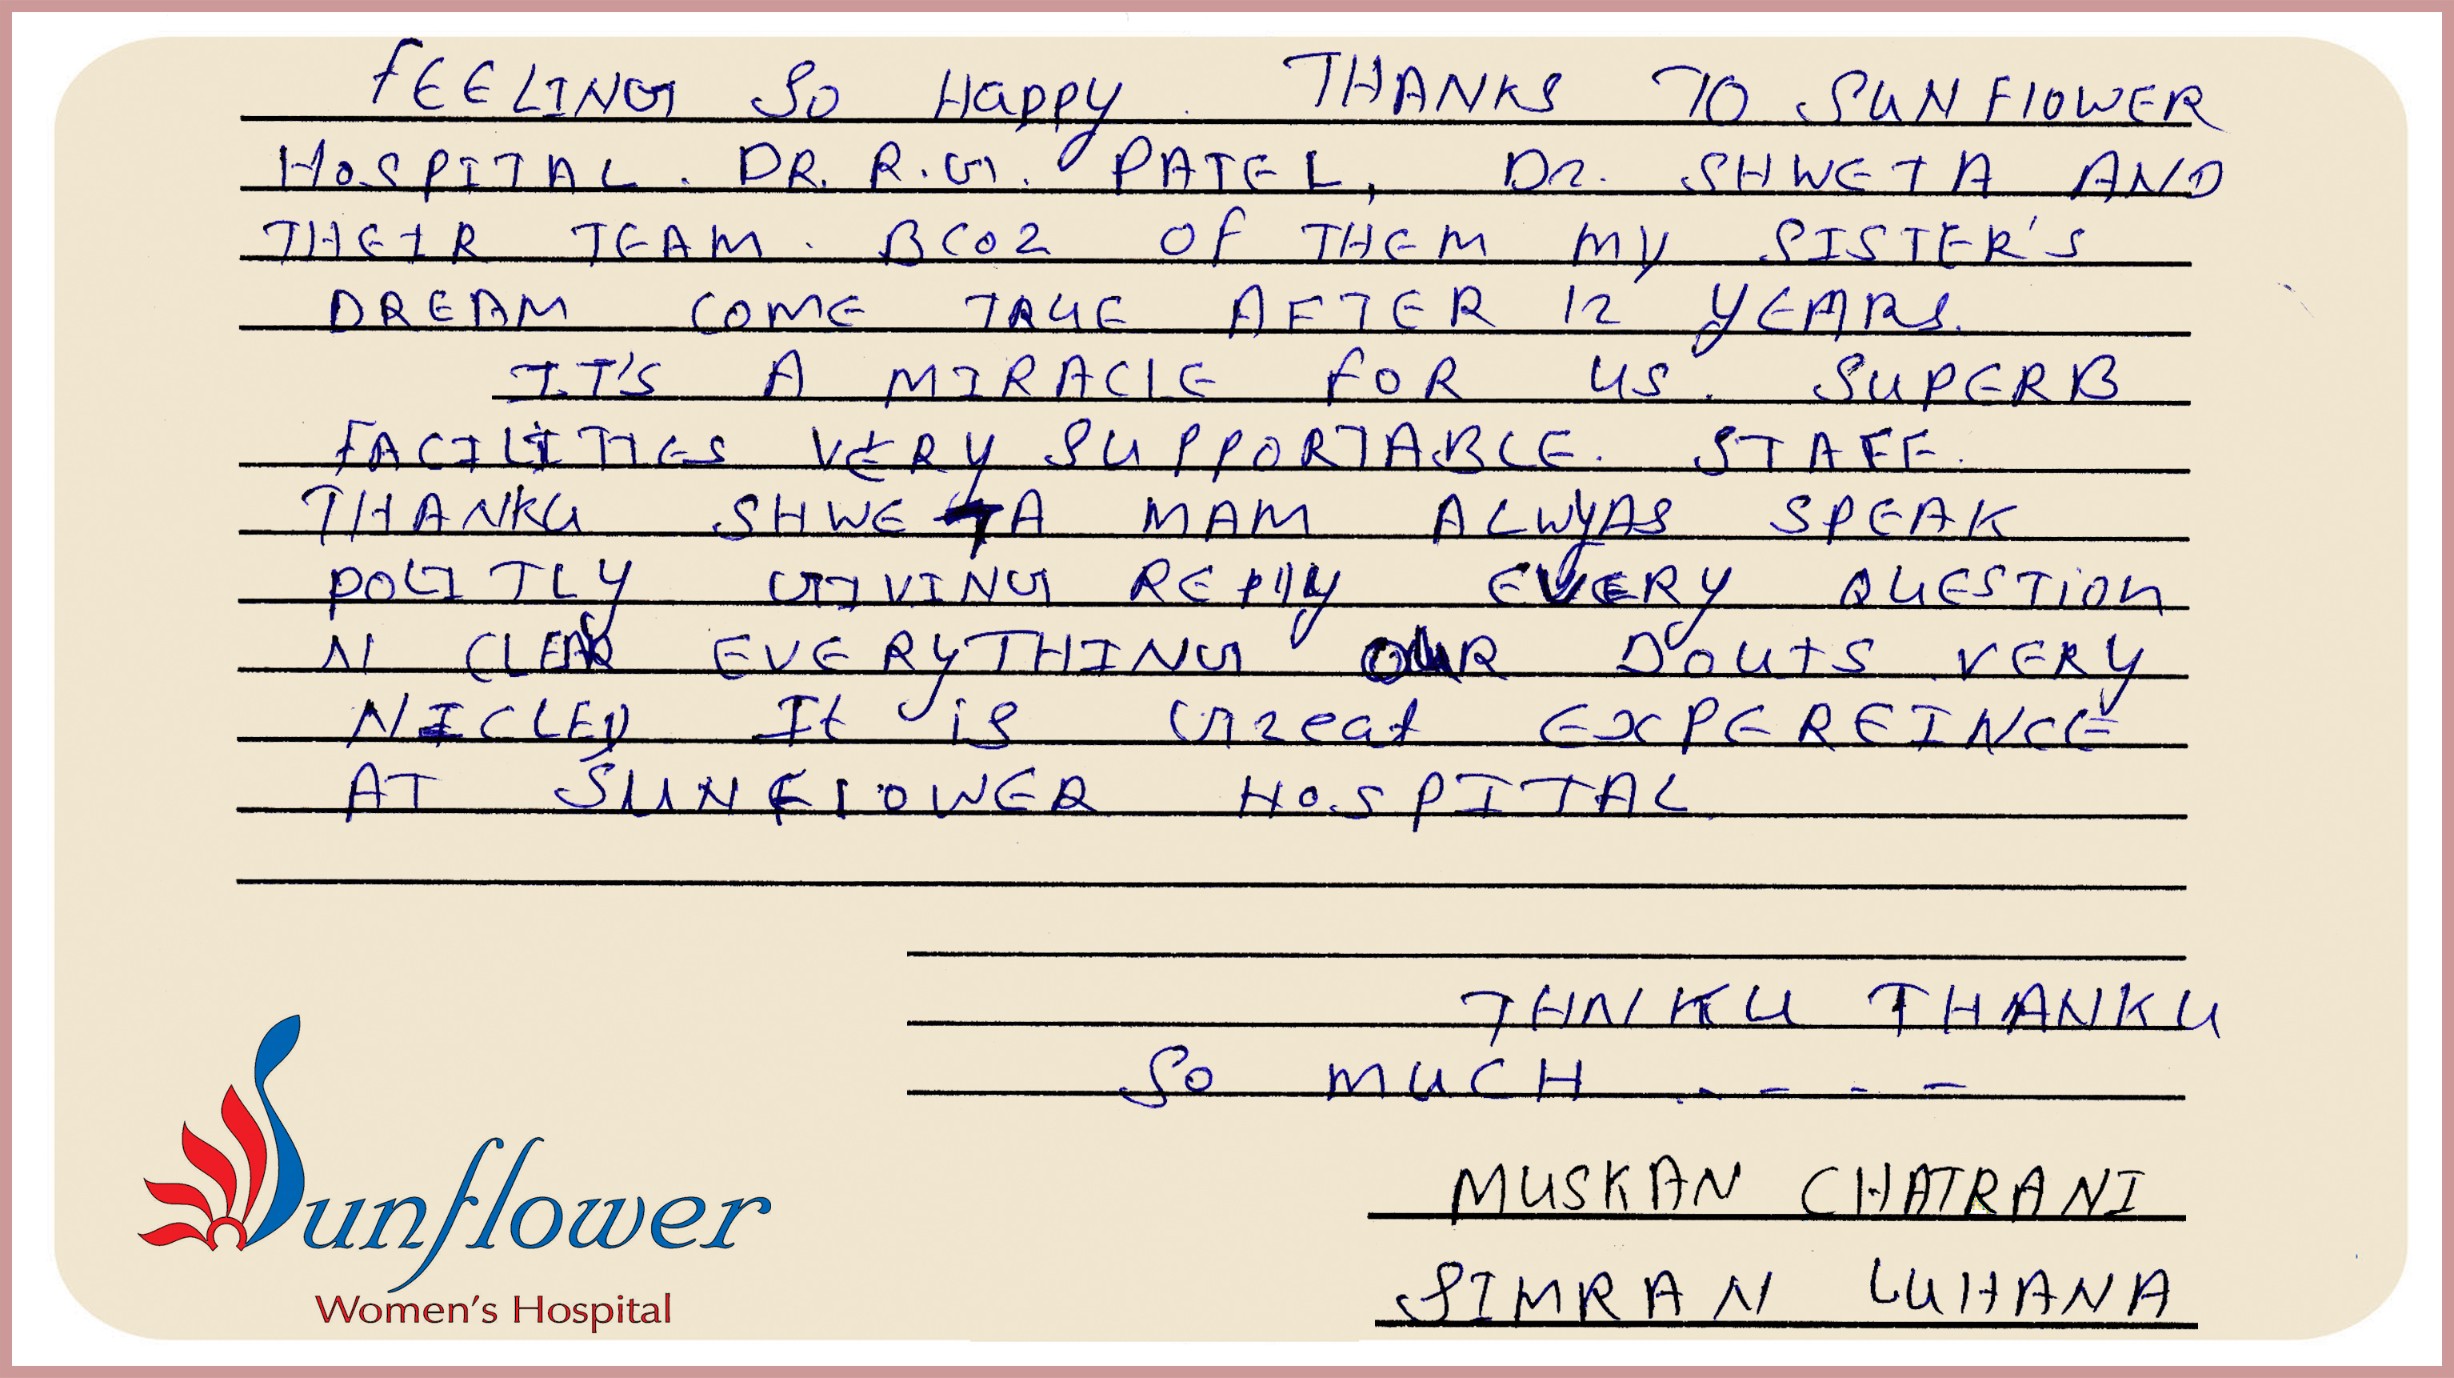 FEELING SO HAPPY. THANKS TO SUNFLOWER
HOSPITAL. DR. R.G. PATEL, Dr. SHWETA AND
THEIR TEAM. BCOZ OF THEM MY SISTER'S
DREAM COME TRUE AFTER 12 YEARS.
IT'S A MIRACLE FOR US. SUPERB
FACILITIES VERY SUPPORTABLE. STAFF.
THANKU SHWETA MAM ALWYAS SPEAK
POLITLY GIVING REPLY EVERY QUESTION
N CLEAR EVERYTHING OUR DOUTS VERY
NICLEY It is Great EXPEREINCE
AT SUNFLOWER HOSPITAL.
THNKU THANKU
SO MUCH . - - - -
MUSKAN CHATRANI
SIMRAN LUHANA
Sunflower
Women's Hospital